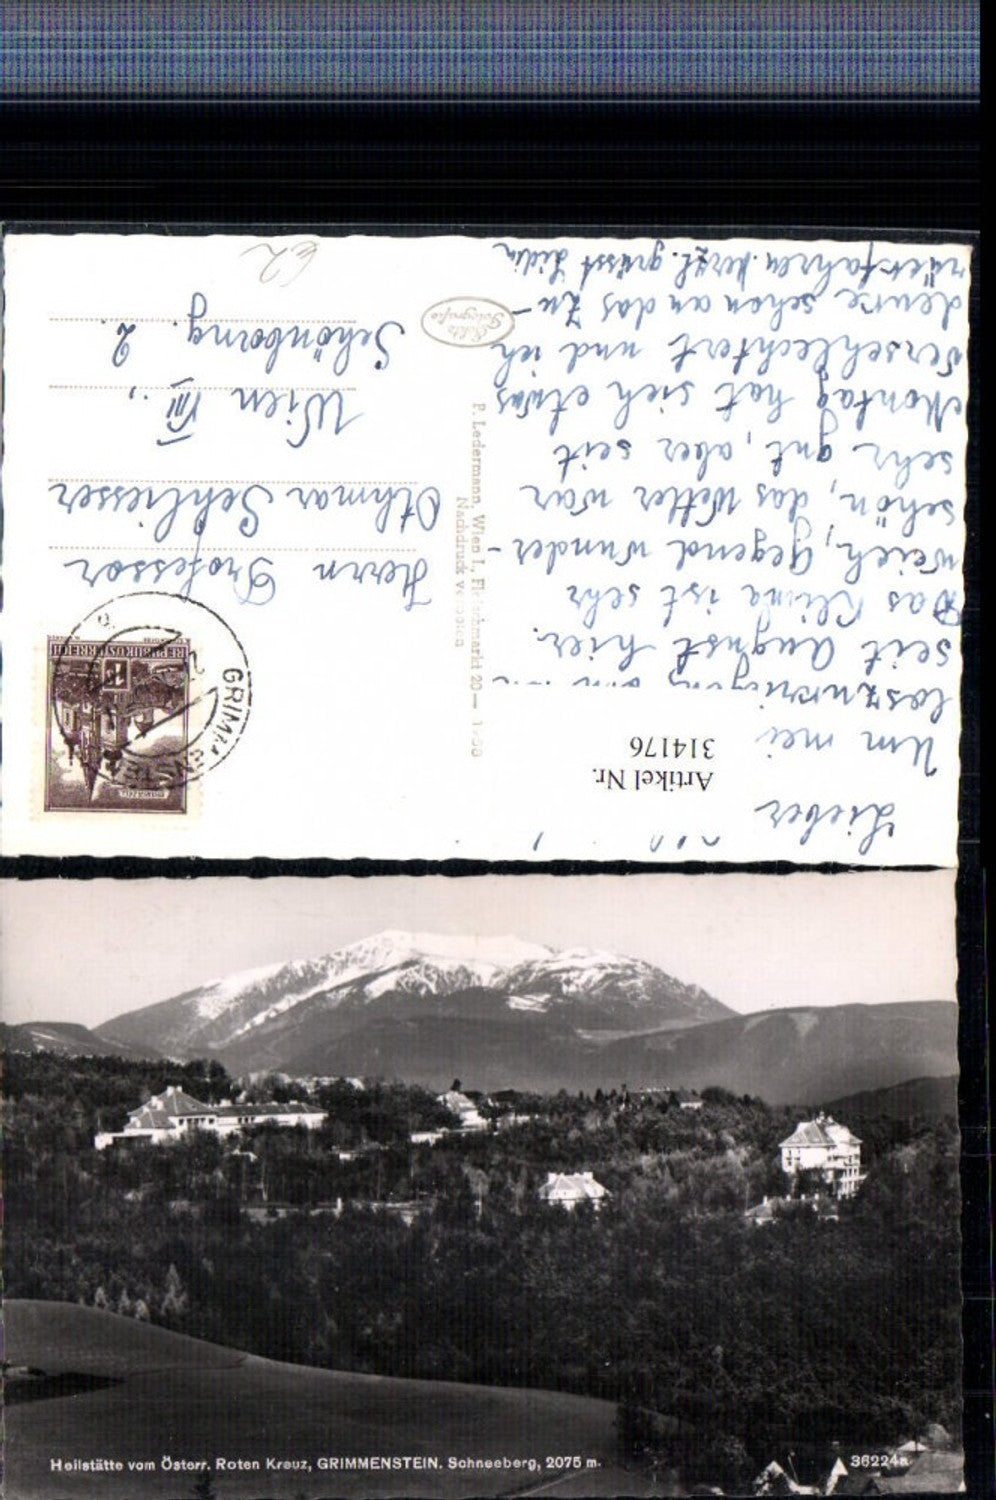 Artikel Nr.
314176
Lieber
Um mei
seit August hier.
Das Klima ist sehr
weich, Gegend wunder-
schön, das Wetter war
sehr gut, aber seit
Montag hat sich etwas
verschlechtert und ich
denke schon an das Zu-
herzl. grüsst
P. Ledermann, Wien I., Fleischmarkt 20 —
Nachdruck verboten
Echte
Fotografie
REPUBLIK ÖSTERREICH
GRIMMENSTEIN
Herrn Professor
Othmar Schliesser
Wien VIII.,
Schönborng. 2.
€2
Heilstätte vom Österr. Roten Kreuz, GRIMMENSTEIN. Schneeberg, 2075 m.
36224a